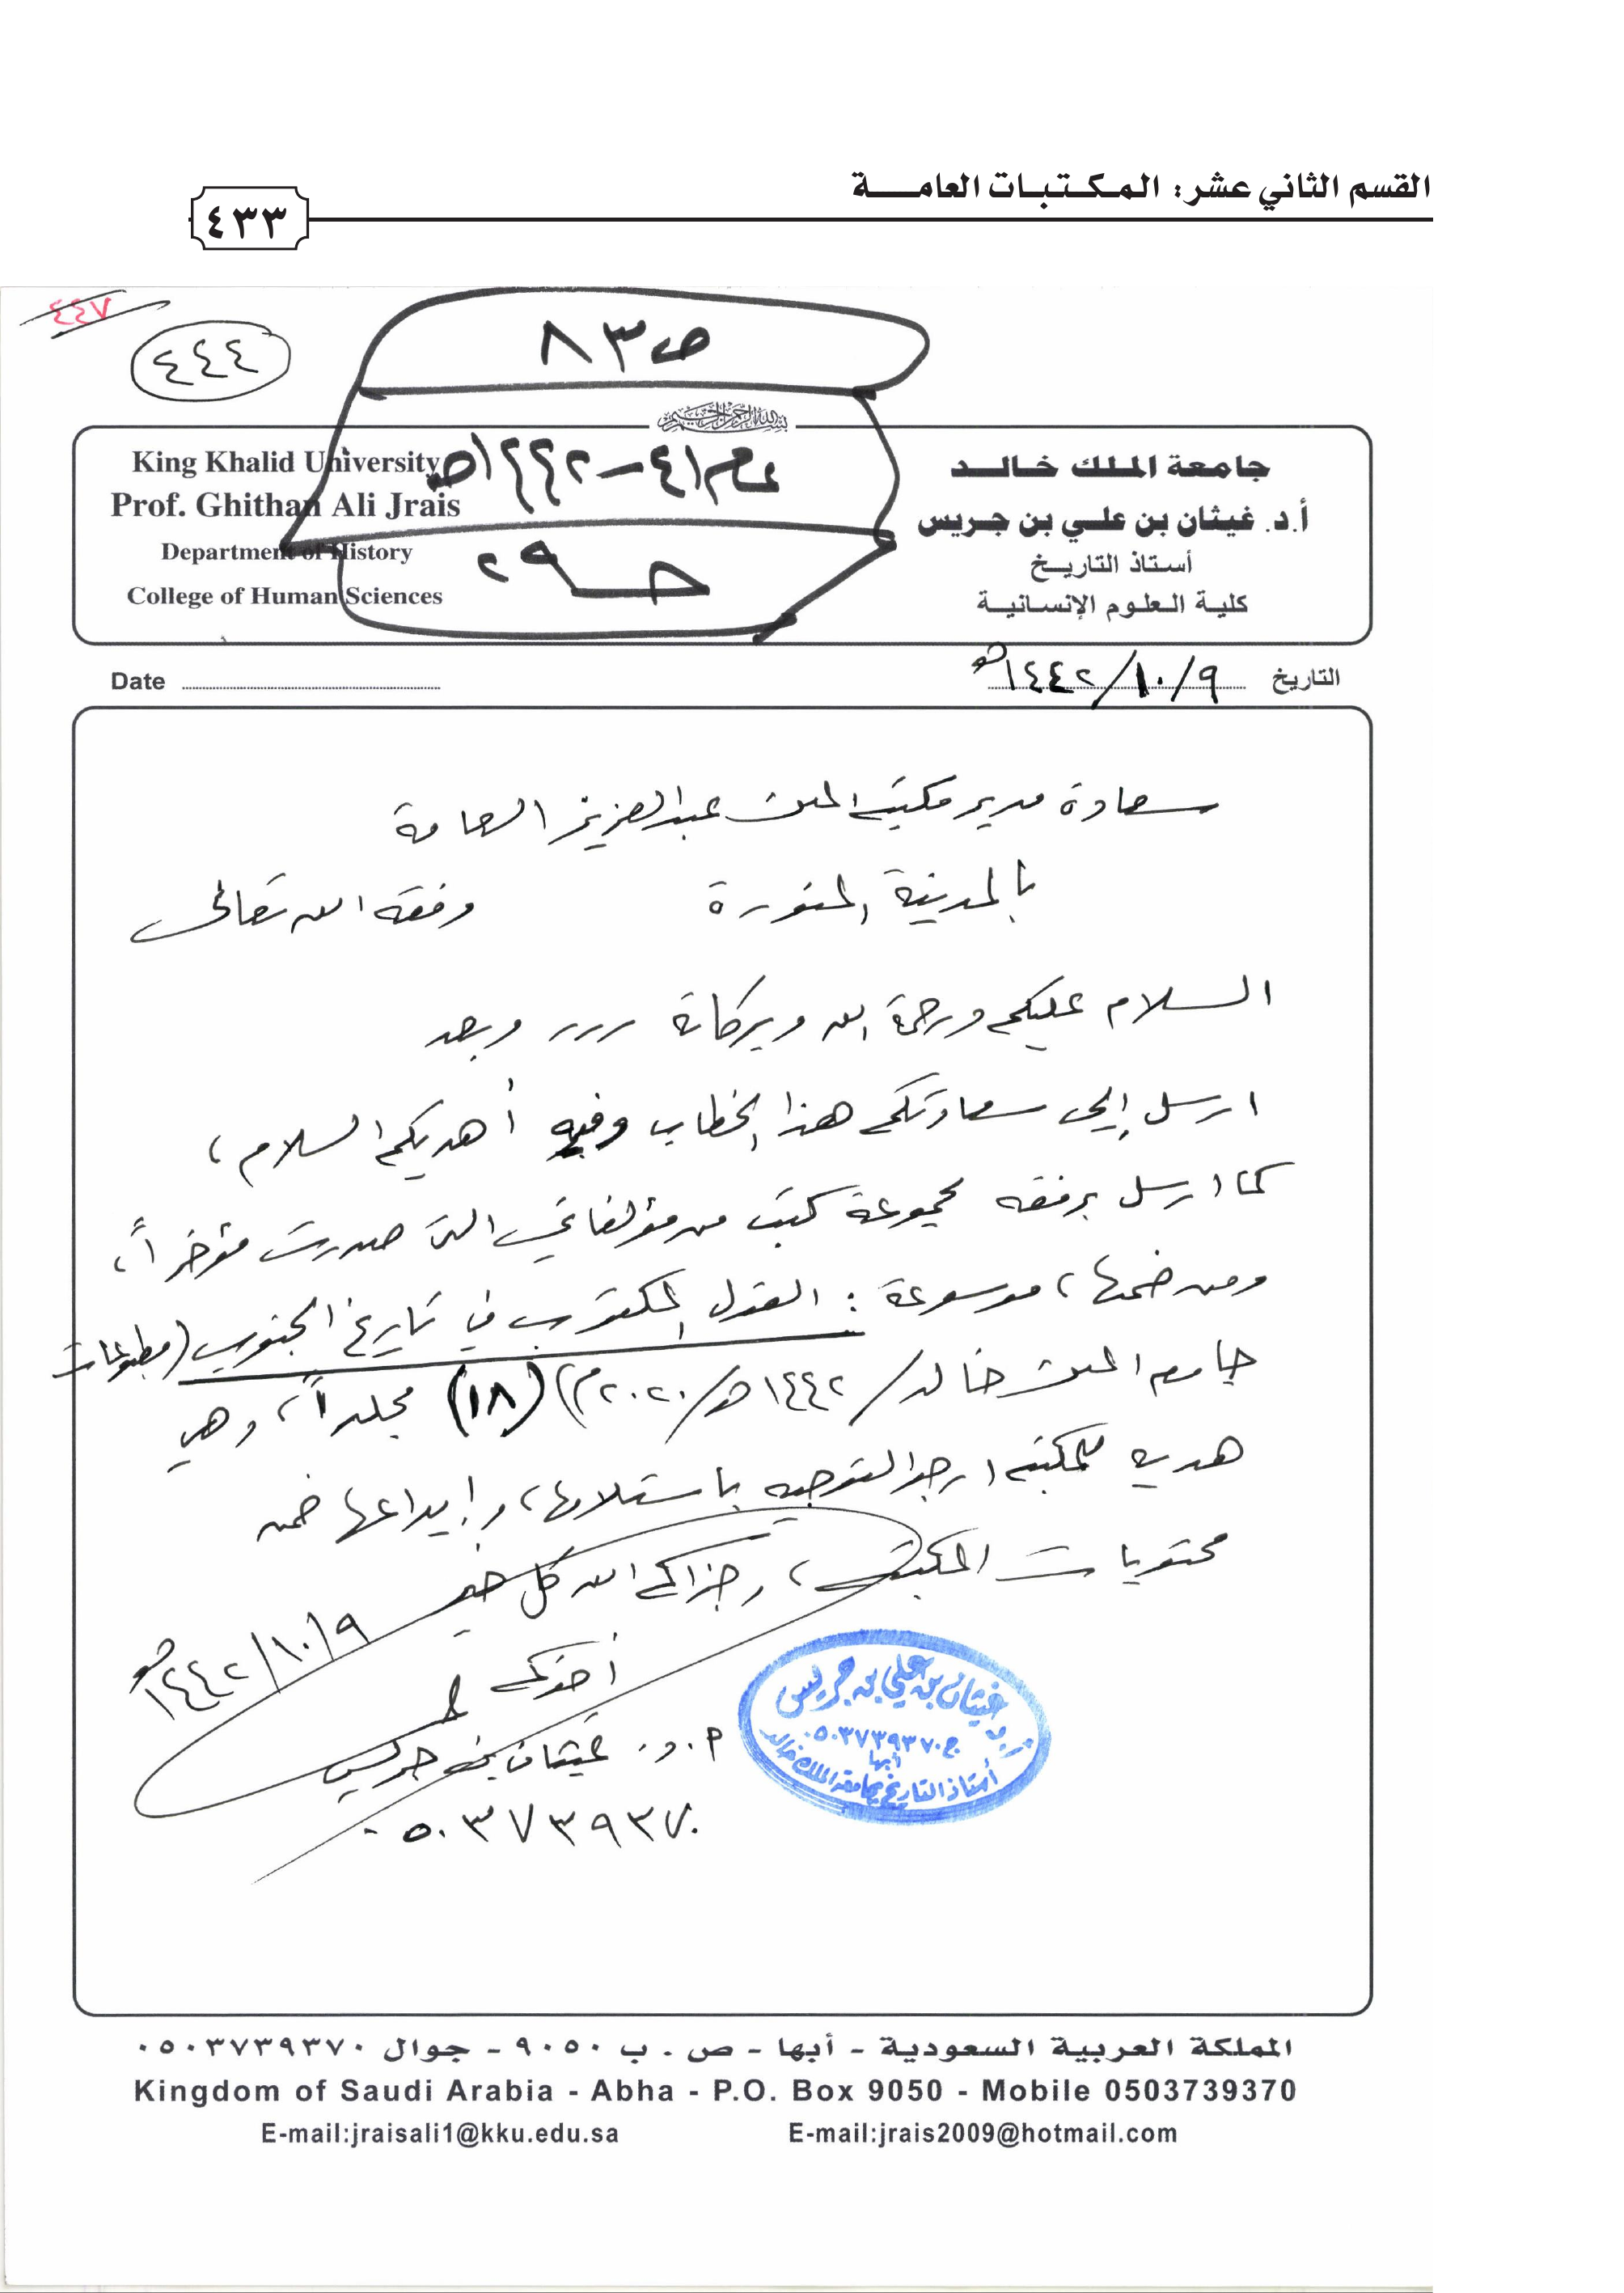 القسم الثاني عشر: المكتبات العامة
٤٣٣
٤٤٧
٤٤٤
ص٨٣
بسم الله الرحمن الرحيم
عام ٤١-١٤٤٢هـ
حـ٢٩
King Khalid University
Prof. Ghithan Ali Jrais
Department of History
College of Human Sciences
جامعة الملك خالد
أ.د. غيثان بن علي بن جريس
أستاذ التاريخ
كلية العلوم الإنسانية
Date
التاريخ ٩/١٠/١٤٤٢هـ
سعادة مدير مكتبة الملك عبدالعزيز العامة
بالمدينة المنورة وفقه الله تعالى
السلام عليكم ورحمة الله وبركاته ... وبعد
ارسل إلى سعادتكم هذا الخطاب وفيه أهديكم السلام،
كما ارسل برفقه مجموعة كتب من مؤلفاتي التي صدرت مؤخراً،
ومن ضمنها، موسوعة: القول المكتوب في تاريخ الجنوب (مطبوعات
جامعة الملك خالد/ ١٤٤٢هـ/٢٠٢٠م) (١٨) مجلداً، وهي
هدية للمكتبة ارجو التوجيه باستلامها، وإيداعها ضمن
محتويات المكتبة، وجزاكم الله كل خير
أخوكم
٩/١٠/١٤٤٢هـ
أ.د. غيثان بن جريس
٠٥٠٣٧٣٩٣٧٠
غيثان بن علي بن جريس
ج.٠٥٠٣٧٣٩٣٧٠
أبها
أستاذ التاريخ بجامعة الملك خالد
المملكة العربية السعودية - أبها - ص . ب ٩٠٥٠ - جوال ٠٥٠٣٧٣٩٣٧٠
Kingdom of Saudi Arabia - Abha - P.O. Box 9050 - Mobile 0503739370
E-mail:jraisali1@kku.edu.sa E-mail:jrais2009@hotmail.com